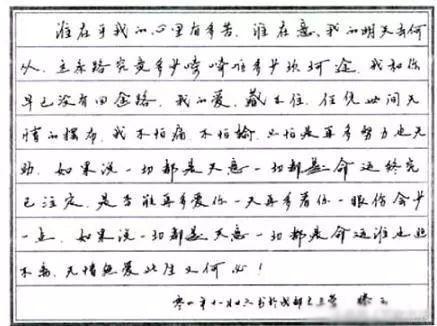 谁在乎我的心里有多苦．谁在意．我的明天去何
从．这条路究竟多少崎岖多少坎坷途．我和你
早已没有回去路．我的爱．藏不住．任凭世间无
情的摆布．我不怕痛．不怕输．只怕是再多努力也无
助．如果说一切都是天意一切都是命运终究
已注定．是否能再多爱你一天再多看你一眼伤会少
一点．如果说一切都是天意一切都是命运谁也逃
不离．无情无爱此生又何必！
书于成都